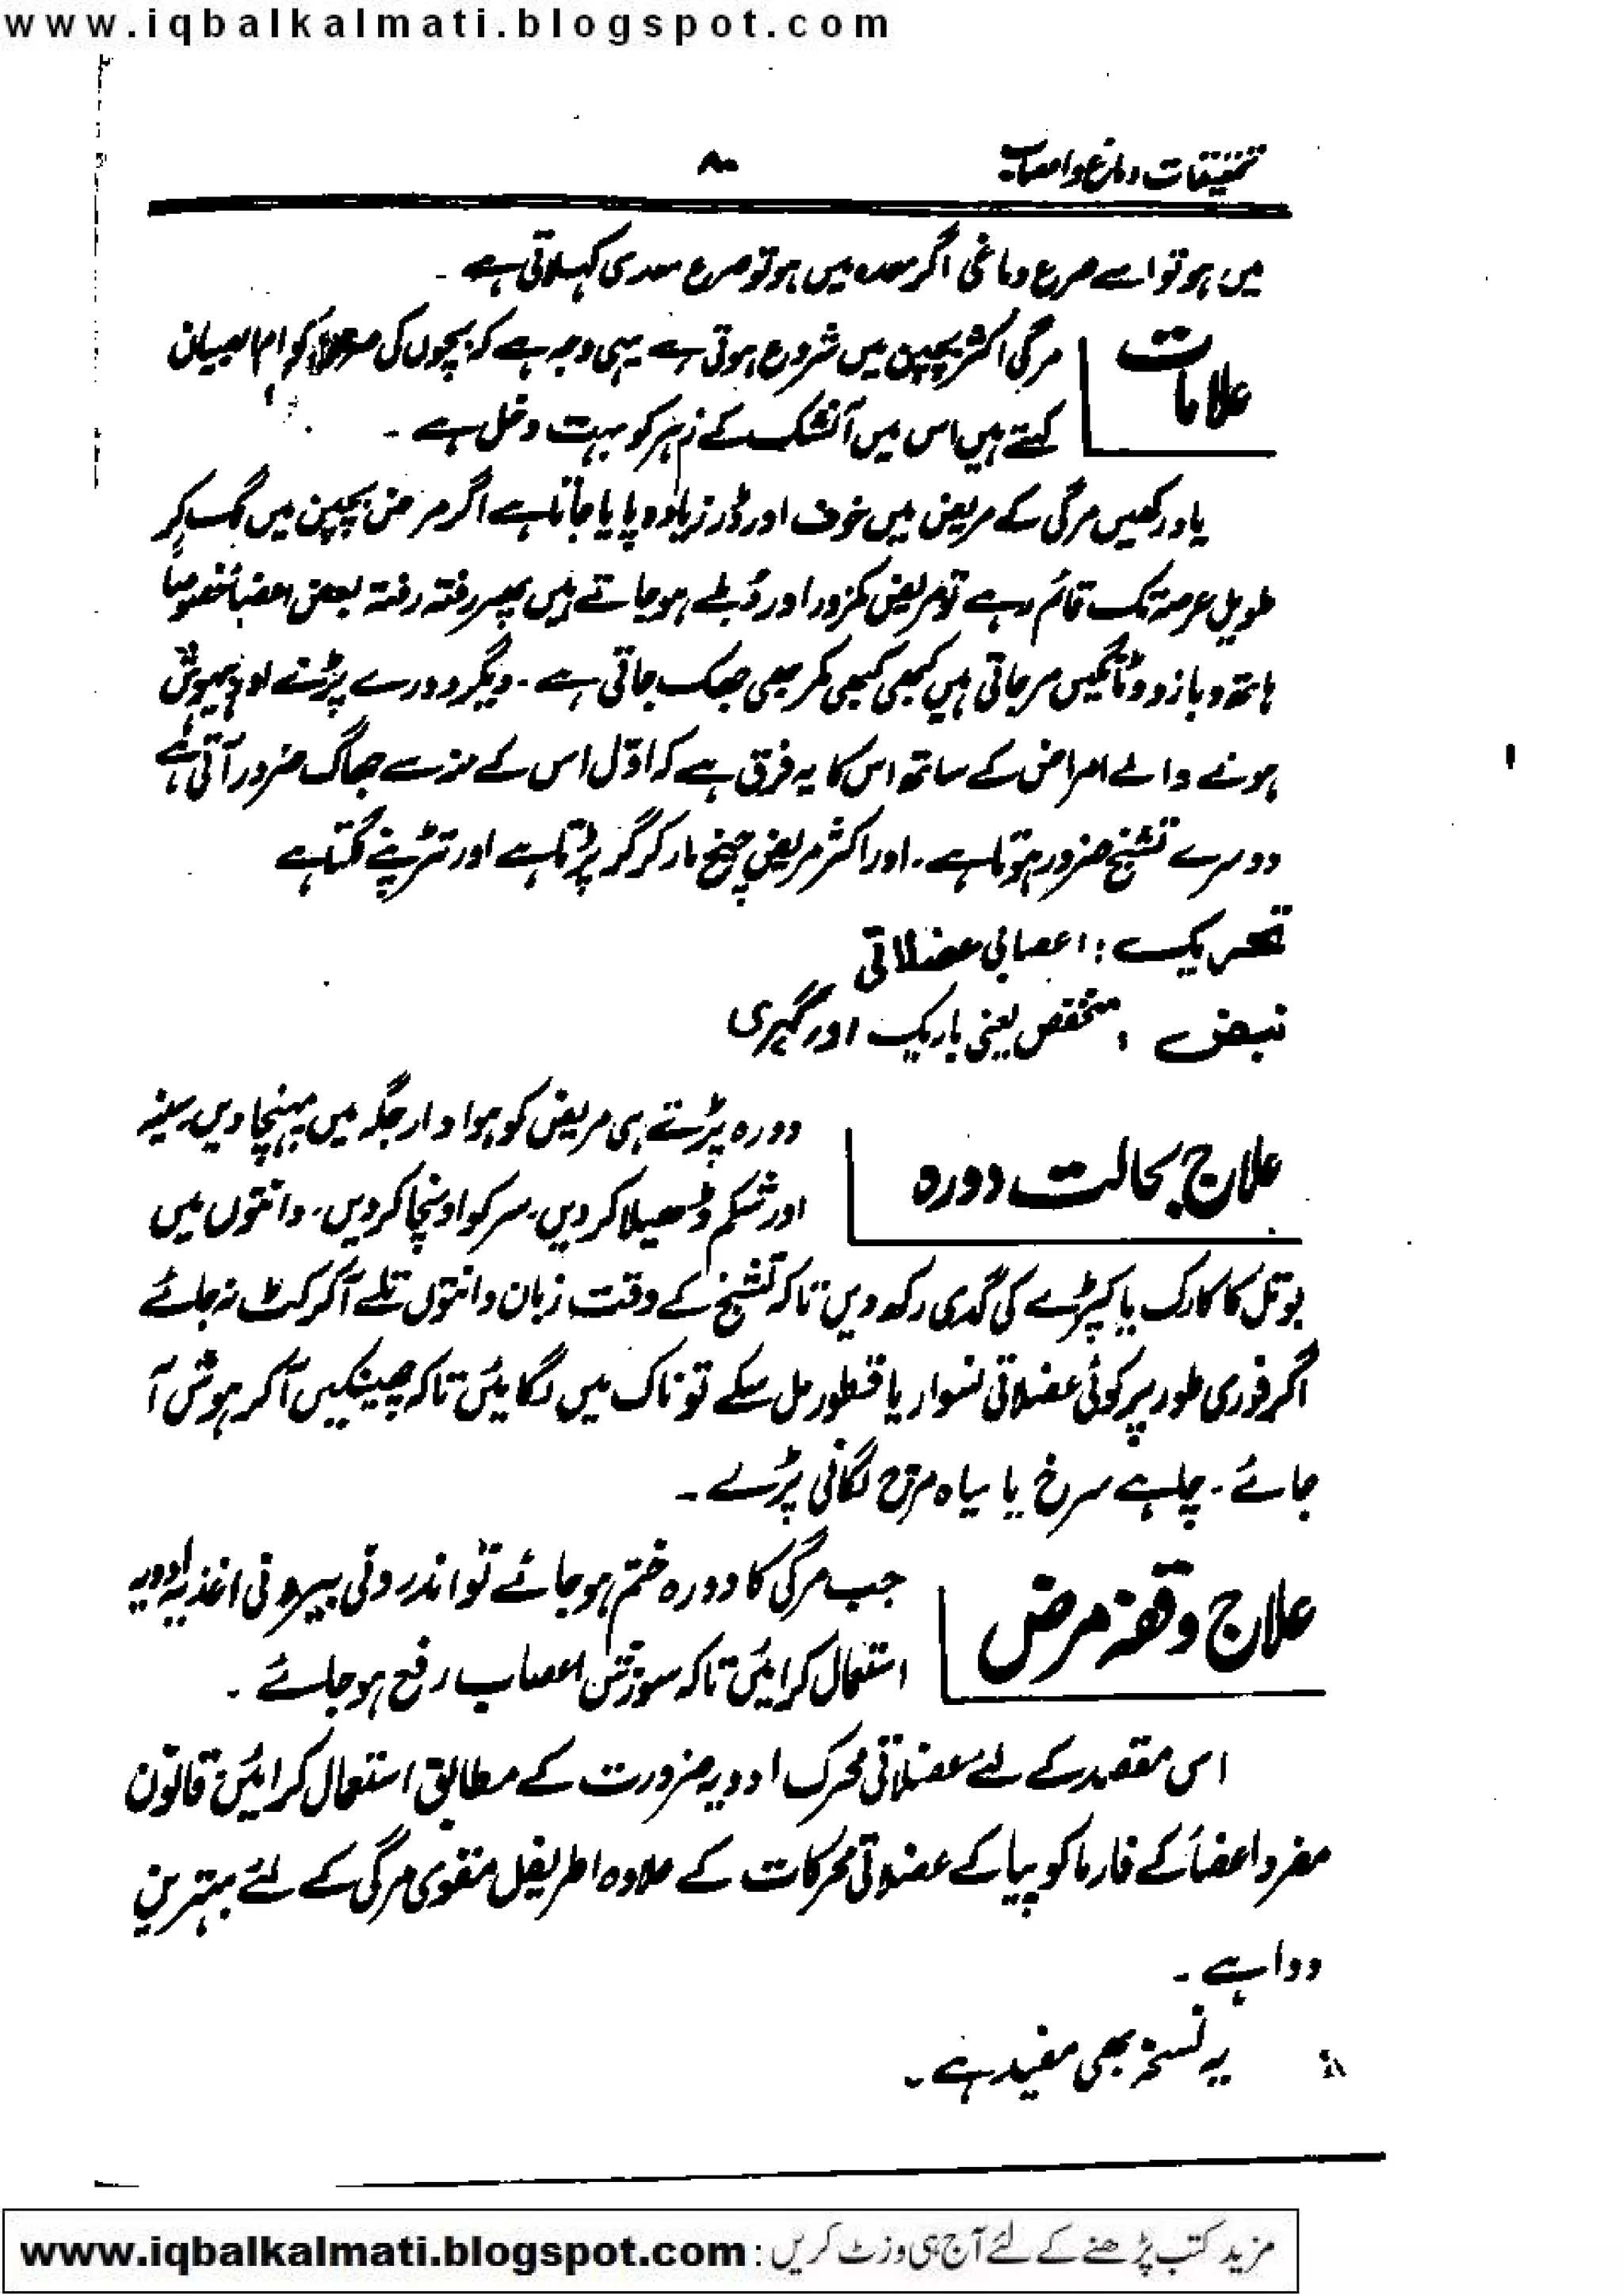 www.iqbalkalmati.blogspot.com
تحقیقات دماغ و اعصاب
۸۰
میں ہو تو اسے صرع دماغی اگر معدہ میں ہو تو صرع معدی کہلاتی ہے ۔
علامات
مرگی اکثر بچپن میں شروع ہوتی ہے یہی وجہ ہے کہ بچوں کی کو ام الصبیان
کہتے ہیں اس میں آتشک کے زہر کو بہت دخل ہے ۔
یاد رکھیں مرگی کے مریض میں خوف اور ڈر زیادہ پایا جاتا ہے اگر مرض بچپن میں لگ کر
طویل عرصہ تک قائم رہے تو مریض کمزور اور دُبلے ہو جاتے ہیں پھر رفتہ رفتہ بعض اعضأ خصوصاً
ہاتھ و بازو و ٹانگیں مر جاتی ہیں کبھی کبھی کمر بھی جھک جاتی ہے ۔ دیگر دورے پڑنے اور بیہوش
ہونے والے امراض کے ساتھ اس کا یہ فرق ہے کہ اوّل اس کے منہ سے جھاگ ضرور آتی ہے
دوسرے تشنج ضرور ہوتا ہے ۔ اور اکثر مریض چیخ مار کر گر پڑتا ہے اور تڑپنے لگتا ہے
تحریک : اعصابی عضلاتی
نبض : منخفض یعنی باریک اور گہری
علاج بحالت دورہ
دورہ پڑتے ہی مریض کو ہوا دار جگہ میں پہنچا دیں سینہ
اور شکم ڈھیلا کر دیں، سر کو اونچا کر دیں، دانتوں میں
بوتل کا کارک یا کپڑے کی گدی رکھ دیں تاکہ تشنج کے وقت زبان دانتوں تلے آ کر کٹ نہ جائے
اگر فوری طور پر کوئی عضلاتی نسوار یا قطور مل سکے تو ناک میں لگائیں تاکہ چھینکیں آ کر ہوش آ
جائے ۔ چاہے سرخ یا سیاہ مرچ لگانی پڑے ۔
علاج وقفہ مرض
جب مرگی کا دورہ ختم ہو جائے تو اندرونی بیرونی اغذیہ ادویہ
استعمال کرائیں تاکہ سوزش اعصاب رفع ہو جائے ۔
اس مقصد کے لئے عضلاتی محرک ادویہ ضرورت کے مطابق استعمال کرائیں قانون
مفرد اعضأ کے فارماکوپیا کے عضلاتی محرکات کے علاوہ اطریفل مقوی مرگی کے لئے بہترین
دوا ہے ۔
یہ نسخہ بھی مفید ہے ۔
مزید کتب پڑھنے کے لئے آج ہی وزٹ کریں : www.iqbalkalmati.blogspot.com